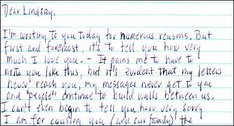 Dear Lindsay,
I'm writing to you today for numerous reasons. But
first and foremost, it's to tell you how very
much I love you. - It pains me to have to
write you like this, but it's evident that my letters
never reach you, my messages never get to you
and "people" continue to build walls between us.
I can't even begin to tell you how very sorry
I am for causing you (and our family) the